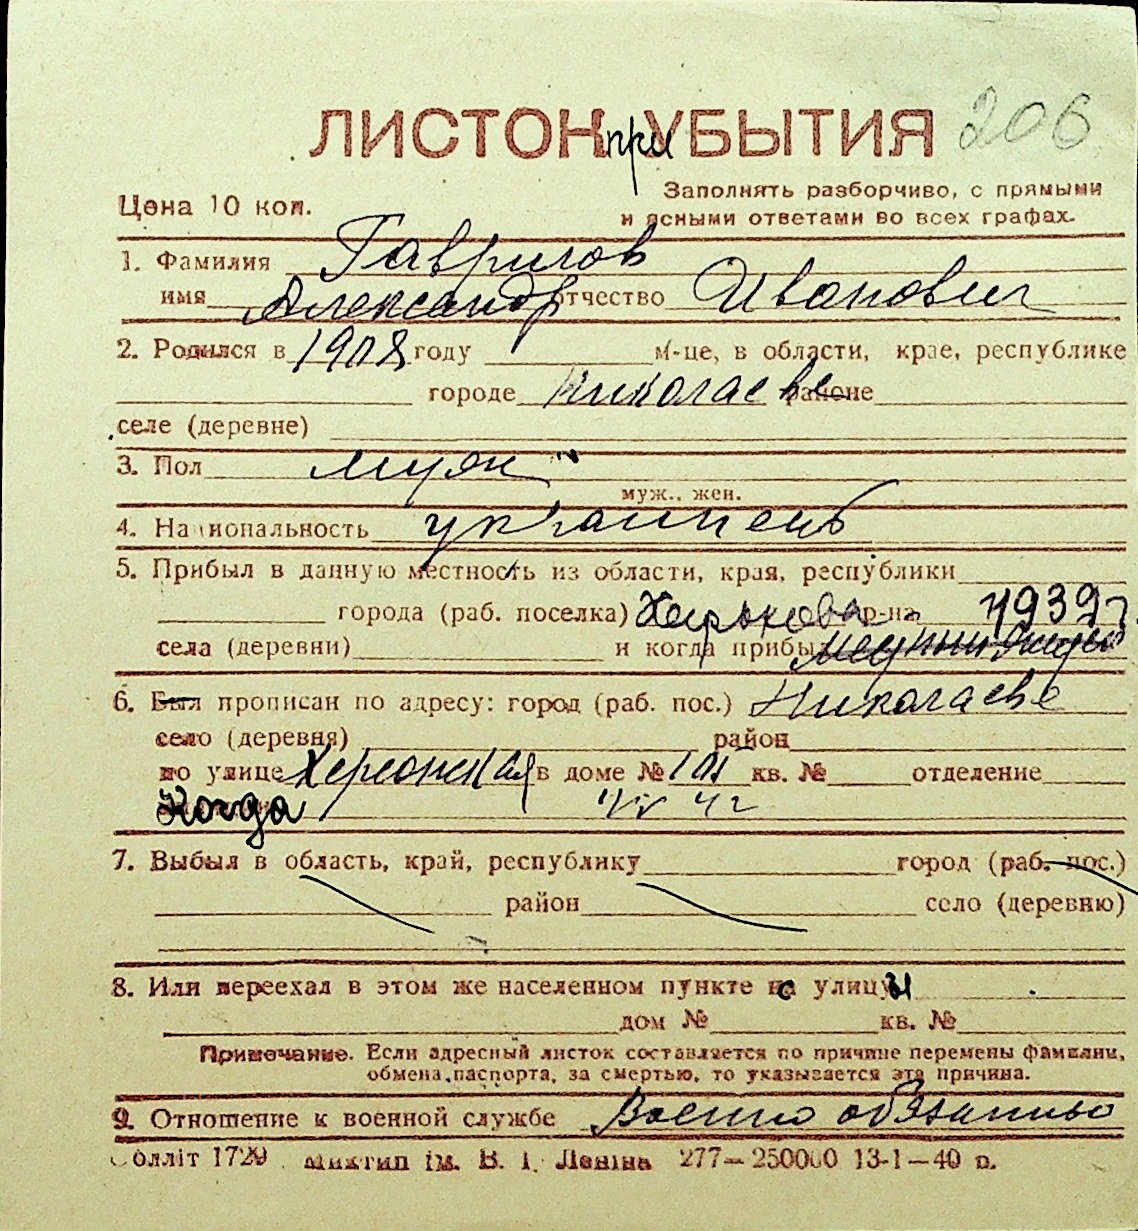 ЛИСТОК при УБЫТИЯ 206
Цена 10 коп.
Заполнять разборчиво, с прямыми
и ясными ответами во всех графах.
1. Фамилия Гаврилов
имя Александр отчество Иванович
2. Родился в 1908 году м-це, в области, крае, республике
городе Николаеве районе
селе (деревне)
3. Пол муж
муж., жен.
4. Национальность украинец
5. Прибыл в данную местность из области, края, республики
города (раб. поселка) Харькова р-на 1939 г.
села (деревни) и когда прибыл
6. Был прописан по адресу: город (раб. пос.) Николаеве
село (деревня) район
по улице Херсонская в доме № 101 кв. № отделение
Когда
7. Выбыл в область, край, республику город (раб. пос.)
район село (деревню)
8. Или переехал в этом же населенном пункте с улицы
дом № кв. №
Примечание. Если адресный листок составляется по причине перемены фамилии,
обмена паспорта, за смертью, то указывается эта причина.
9. Отношение к военной службе Военно обязанный
Облліт 1729 Миктип ім. В. І. Леніна 277—250000 13-1—40 р.